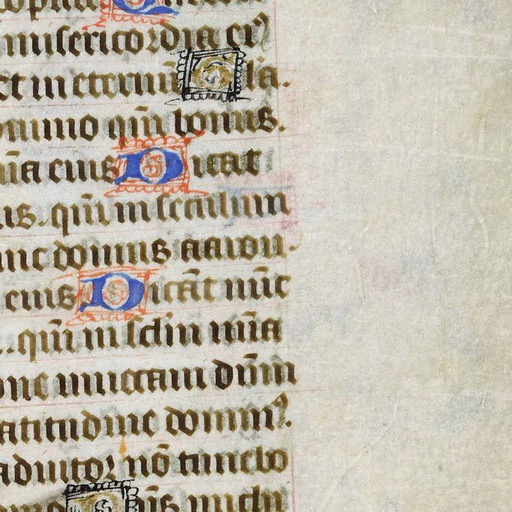 misericordia ei⁹
et in eternū S la.
omino qm̄ bonus.
eius Dicat
us. qm̄ in seculum
nc domus aaron.
eius Dicāt nūc
. qm̄ in sclm mīa
one inuocaui dūm
atitudine domin⁹.
adiutor nō timebo
michi